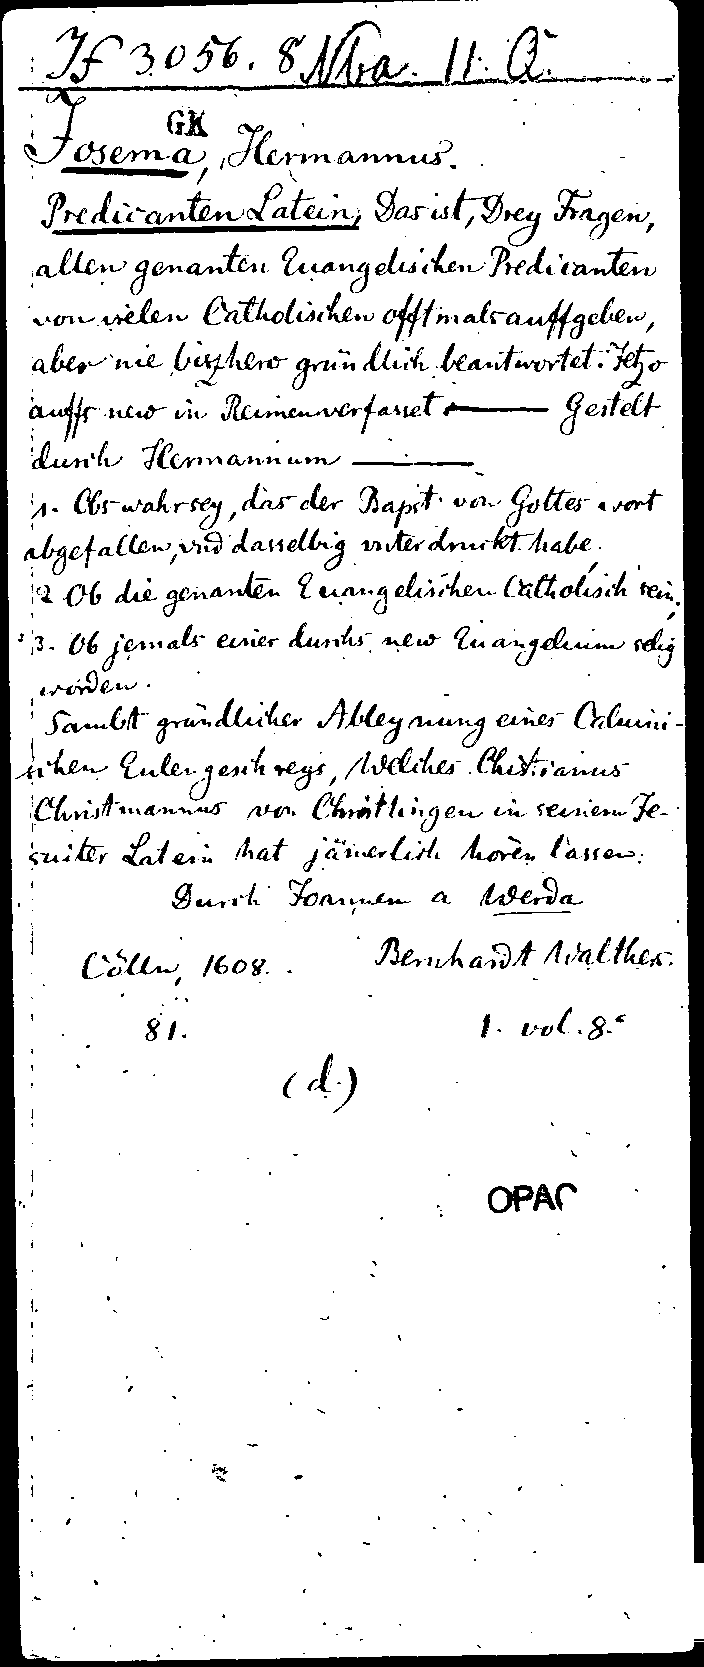 If 3056. 8 Nba. 11. Q.
GK
Josema, Hermannus.
Predicanten Latein, Das ist, Drey Fragen,
allen genanten Euangelischen Predicanten
von vielen Catholischen offtmals auffgeben,
aber nie biszhero gründlich beantwortet. Jetzo
auffs new in Reimen verfasset — Gestelt
durch Hermannum —
1. Obs wahr sey, das der Bapst von Gottes wort
abgefallen, vnd dasselbig vnterdruckt habe.
2 Ob die genanten Euangelischen Catholisch sein,
3. Ob jemals einer durchs new Euangelium selig
worden.
Sambt gründlicher Ableynung eines Caluini-
schen Eulengeschreys, Welches Christianus
Christmannus von Christlingen in seinem Je-
suiter Latein hat jämerlich hören lassen.
Durch Joannem a Werda
Cölln, 1608. Bernhardt Walther.
81. 1. vol. 8.°
(d.)
OPAC